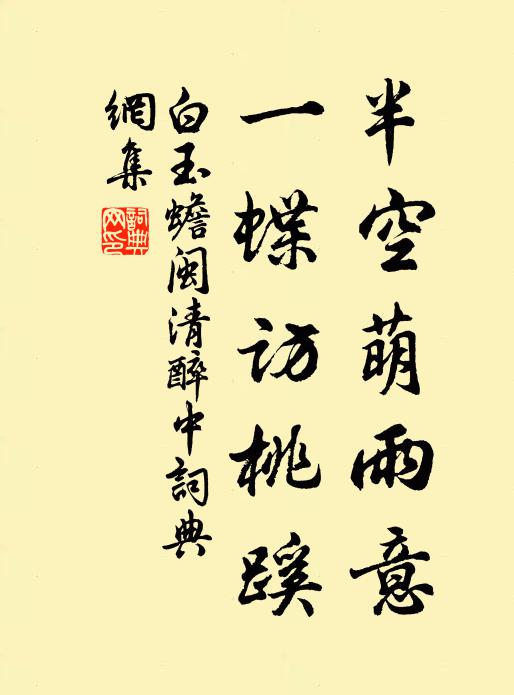 半空萌雨意
一蝶訪桃蹊
白玉蟾閩清醉中詞典
網集
詞典
网印